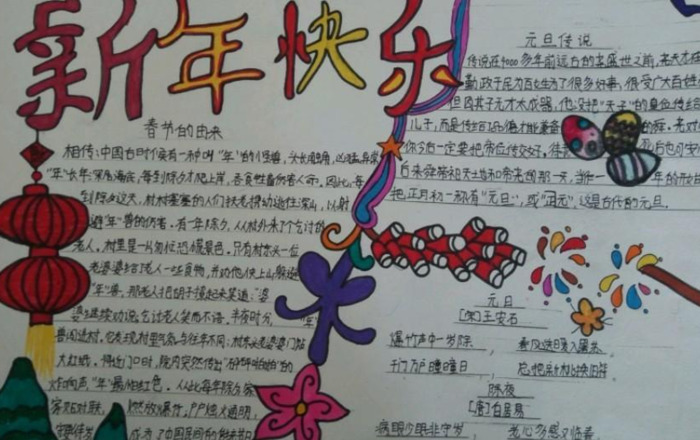 新年快乐
春节的由来
相传:中国古时候有一种叫"年"的怪兽,头长角,凶猛异常
"年"长年深居海底,每到除夕才爬上岸,吞食牲畜伤害人命。因此,每
到除夕这天,村村寨寨的人们扶老携幼逃往深山,以躲
避"年"兽的伤害。有一年除夕,从村外来了个乞讨的
老人,村里是一片匆忙恐慌景象,只有村东头一位
老婆婆给了老人一些食物,并劝他快上山躲避
"年"兽,那老人把胡子撩起来笑道:"婆
婆继续劝说,乞讨老人笑而不语。半夜时分,"年"
兽闯进村。它发现村里气氛与往年不同:村东头老婆婆门贴
大红纸。将近门口时,院内突然传出"砰砰啪啪"的
炸响声,"年"最怕红色。从此每年除夕家
家贴对联,燃放爆竹,户户烛火通明,
成为了中国民间的
元旦传说
传说在4000多年前远古的尧盛世之前,尧天子在
勤政于民为百姓办了很多好事,很受广大百姓
但因其子无才不成器,他没把"天子"的皇位传给
儿子,而是传给了品德才能兼备的舜。尧对
你今后一定要把帝位传交好,待
后来舜帝祭祀天地和帝尧的那一天,当作
把正月初一称有"元旦",或"正元",这是古代的元旦。
元日
[宋]王安石
爆竹声中一岁除,春风送暖入屠苏
千门万户瞳瞳日,总把新桃换旧符
除夜
[唐]白居易
病眼少眠非守岁,老心多感又临春